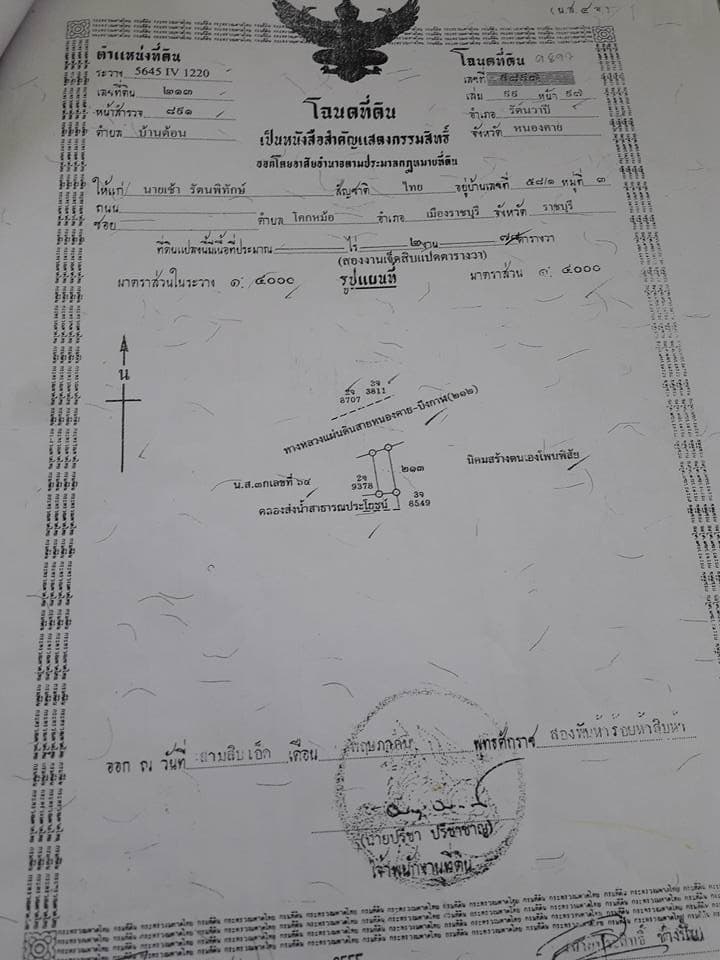 (น.ส.๔ จ)
ตำแหน่งที่ดิน
ระวาง 5645 IV 1220
เลขที่ดิน ๒๑๓
หน้าสำรวจ ๘๙๑
ตำบล บ้านต้อน
โฉนดที่ดิน
เลขที่
เล่ม ๙๙ หน้า ๙๗
อำเภอ รัตนวาปี
จังหวัด หนองคาย
โฉนดที่ดิน
เป็นหนังสือสำคัญแสดงกรรมสิทธิ์
ออกโดยอาศัยอำนาจตามประมวลกฎหมายที่ดิน
ให้แก่ นายเช้า รัตนพิทักษ์ สัญชาติ ไทย อยู่บ้านเลขที่ ๕๘/๑ หมู่ที่ ๓
ถนน
ซอย ตำบล โคกหม้อ อำเภอ เมืองราชบุรี จังหวัด ราชบุรี
ที่ดินแปลงนี้มีเนื้อที่ประมาณ ไร่ ๒ งาน ๗๘ ตารางวา
(สองงานเจ็ดสิบแปดตารางวา)
มาตราส่วนในระวาง ๑: ๔๐๐๐ รูปแผนที่ มาตราส่วน ๑: ๔๐๐๐
น
2จ 2จ
8707 3811
ทางหลวงแผ่นดินสายหนองคาย-บึงกาฬ(๒๑๒)
๒๑๓
นิคมสร้างตนเองโพนพิสัย
น.ส.๓ก เลขที่ ๖๙
2จ
9378
คลองส่งน้ำสาธารณประโยชน์
3จ
8549
ออก ณ วันที่ สามสิบเอ็ด เดือน พฤษภาคม พุทธศักราช สองพันห้าร้อยห้าสิบห้า
(นายปรีชา ปรีชาชาญ)
เจ้าพนักงานที่ดิน